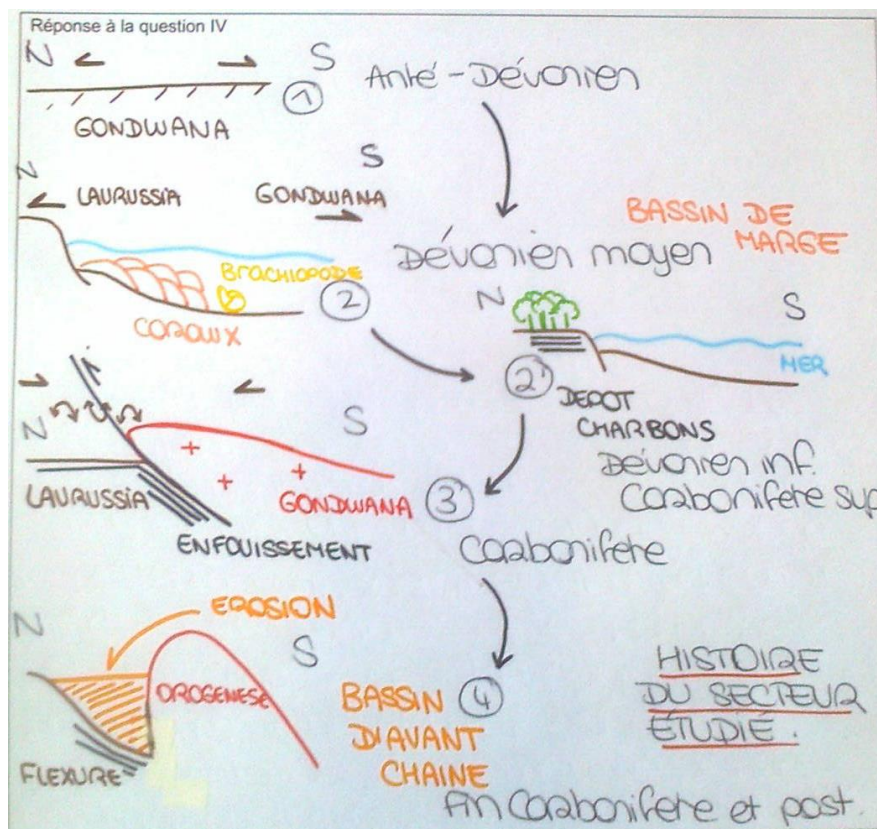 Réponse à la question IV
N S
① Anté-Dévonien
GONDWANA
N S
LAURUSSIA GONDWANA
BASSIN DE
MARGE
Dévonien moyen
BRACHIOPODE
②
CORAUX
N S
MER
②'
DEPOT
CHARBONS
Dévonien inf.
Carbonifère sup
N S
LAURUSSIA
GONDWANA ③
ENFOUISSEMENT
Carbonifère
EROSION
N S
OROGENESE
FLEXURE
BASSIN ④
D'AVANT
CHAINE
Fin Carbonifère et post.
HISTOIRE
DU SECTEUR
ÉTUDIÉ.